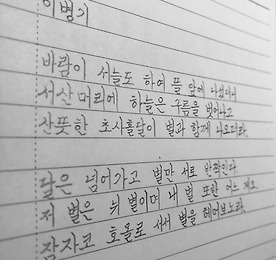 이병기
바람이 서늘도 하여 뜰 앞에 나섰더니
서산 머리에 하늘은 구름을 벗어나고
산뜻한 초사흘달이 별과 함께 나오더라.
달은 넘어가고 별만 서로 반짝인다.
저 별은 뉘 별이며 내 별 또한 어느 게오.
잠자코 호올로 서서 별을 헤어보노라.